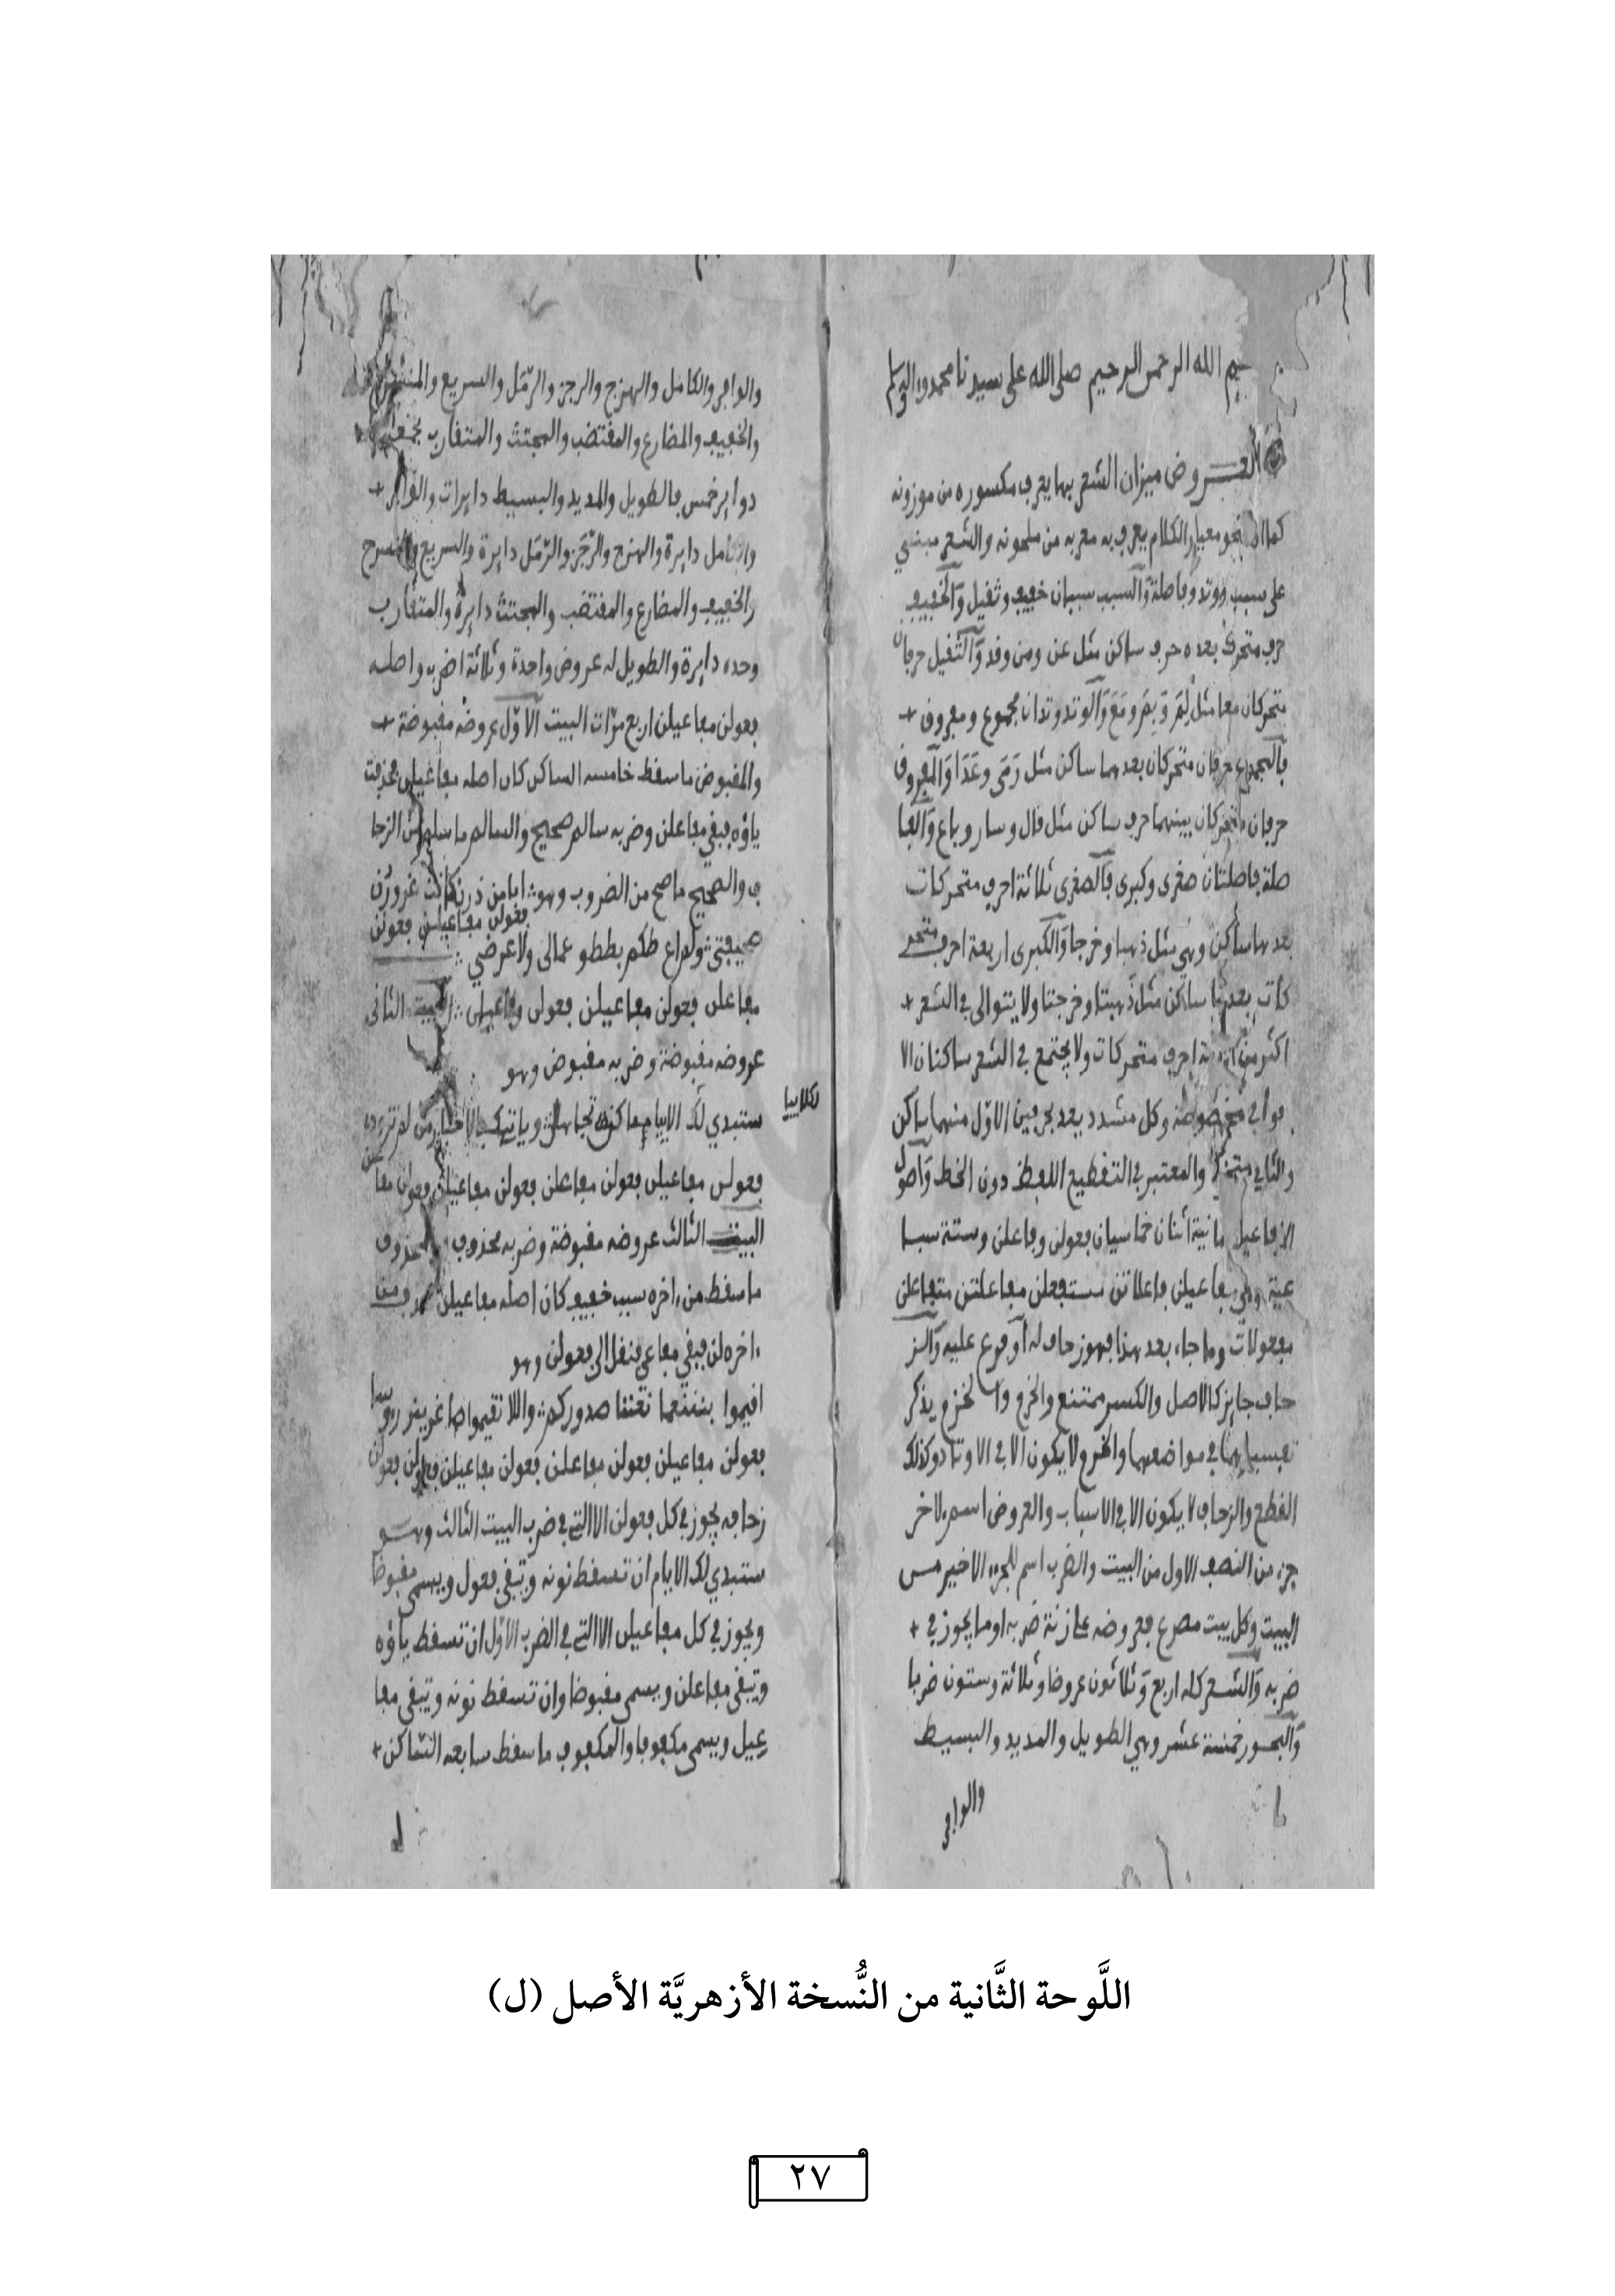 بسم الله الرحمن الرحيم صلى الله على سيدنا محمد وآله
العروض ميزان الشعر بها يعرف مكسوره من موزونه
كما ان النحو معيار الكلام يعرف به معربه من ملحونه والشعر مبني
على سبب ووتد وفاصلة والسبب سببان خفيف وثقيل والخفيف
حرف متحرك بعده حرف ساكن مثل عن ومن وقد والثقيل حرفان
متحركان معا مثل لم وبم ومع والوتد وتدان مجموع ومفروق
فالمجموع حرفان متحركان بعدهما ساكن مثل رمى وغدا والمفروق
حرفان متحركان بينهما حرف ساكن مثل قال وسار وباع والفا
صلة فاصلتان صغرى وكبرى فالصغرى ثلاثة احرف متحركات
بعدها ساكن وهي مثل ذهبا وخرجا والكبرى اربعة احرف متحر
كات بعدها ساكن مثل ذهبتا وخرجتا ولا يتوالى في الشعر
اكثر من اربعة احرف متحركات ولا يجتمع في الشعر ساكنان الا
في قواف مخصوصة وكل مشدد يعد بحرفين الاول منهما ساكن
والثاني متحرك والمعتبر في التقطيع اللفظ دون الخط واصول
الافاعيل ثمانية اثنان خماسيان فعولن وفاعلن وستة سبا
عية وهي مفاعيلن فاعلاتن مستفعلن مفاعلتن متفاعلن
مفعولات وما جاء بعد هذا فهو زحاف له او فرع عليه والز
حاف جايز كالاصل والكسر ممتنع والخرم والخزم يذكر
تفسيرهما في مواضعهما والخرم لا يكون الا في الاوتاد وكذلك
القطع والزحاف لا يكون الا في الاسباب والعروض اسم لاخر
جزء من النصف الاول من البيت والضرب اسم للجزء الاخير من
البيت وكل بيت مصرع فعروضه على زنة ضربه او ما يجوز في
ضربه والشعر كله اربع وثلاثون عروضا وثلاثة وستون ضربا
والبحور خمسة عشر وهي الطويل والمديد والبسيط
والوافر
والوافر والكامل والهزج والرجز والرمل والسريع والمنسرح
والخفيف والمضارع والمقتضب والمجتث والمتقارب يجمعها
دوائر خمس فالطويل والمديد والبسيط دايرة والوافر
والكامل دايرة والهزج والرجز والرمل دايرة والسريع والمنسرح
والخفيف والمضارع والمقتضب والمجتث دايرة والمتقارب
وحده دايرة والطويل له عروض واحدة وثلاثة اضرب واصله
فعولن مفاعيلن اربع مرات البيت الاول عروضه مقبوضة
والمقبوض ما سقط خامسه الساكن كان اصله مفاعيلن فحذفت
ياؤه فبقي مفاعلن وضربه سالم صحيح والسالم ما سلم من الزحا
ف والصحيح ما صح من الضروب وهو ابا منذر كانت غرورا
فعولن مفاعيلن فعولن
صحيفتي ولم اعطكم بالطوع مالي ولا عرضي
مفاعلن فعولن مفاعيلن فعولن مفاعيلن البيت الثاني
عروضه مقبوضة وضربه مقبوض وهو
ستبدي لك الايام ما كنت جاهلا وياتيك بالاخبار من لم تزود
فعولن مفاعيلن فعولن مفاعلن فعولن مفاعيلن فعولن مفاعلن
البيت الثالث عروضه مقبوضة وضربه محذوف والمحذوف
ما سقط من ءاخره سبب خفيف كان اصله مفاعيلن فحذف من
ءاخره لن فبقي مفاعي فنقل الى فعولن وهو
اقيموا بني النعمان عنا صدوركم والا تقيموا صاغرين الرؤسا
فعولن مفاعيلن فعولن مفاعلن فعولن مفاعيلن فعولن فعولن
زحافه يجوز في كل فعولن الا التي في ضرب البيت الثالث وهو
ستبدي لك الايام ان تسقط نونه ويبقى فعول ويسمى مقبوضا
ويجوز في كل مفاعيلن الا التي في الضرب الاول ان تسقط ياؤه
ويبقى مفاعلن ويسمى مقبوضا وان تسقط نونه ويبقى مفا
عيل ويسمى مكفوفا والمكفوف ما سقط سابعه الساكن
اللَّوحة الثَّانية من النُّسخة الأزهريَّة الأصل (ل)
٢٧